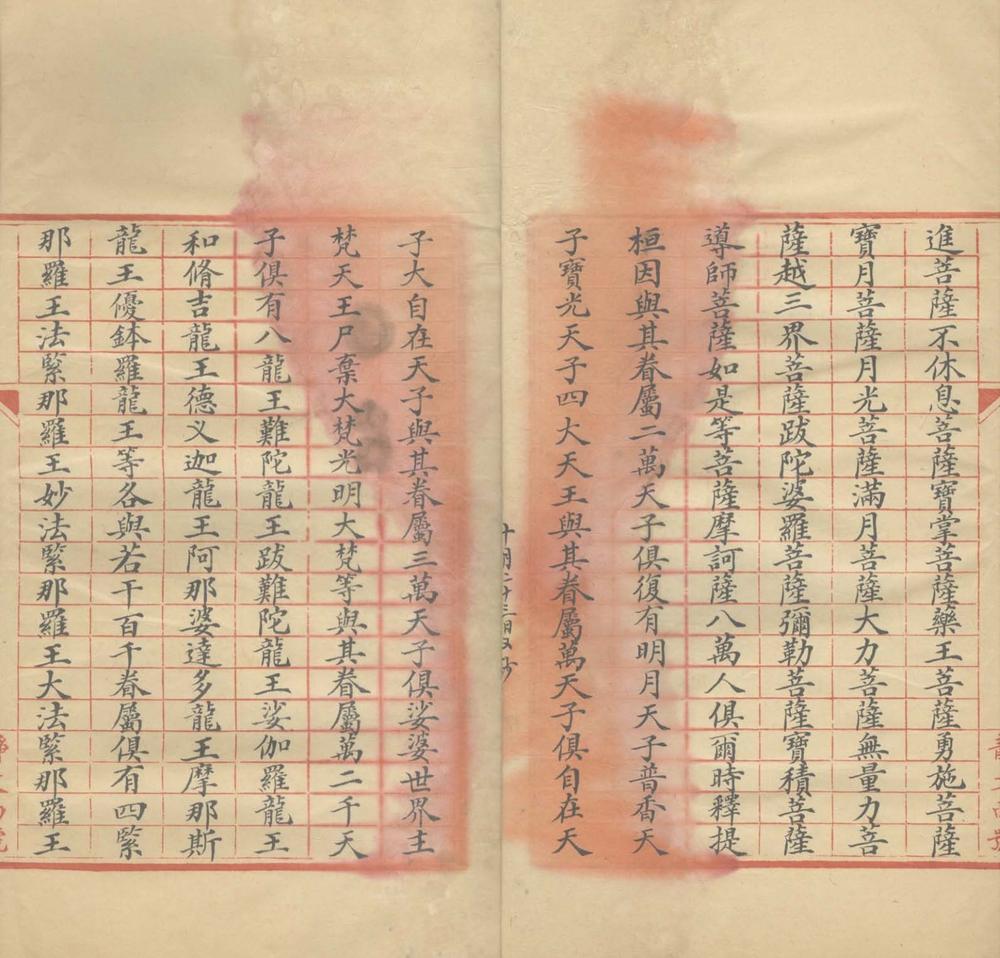 進菩薩不休息菩薩寶掌菩薩藥王菩薩勇施菩薩
寶月菩薩月光菩薩滿月菩薩大力菩薩無量力菩
薩越三界菩薩跋陀婆羅菩薩彌勒菩薩寶積菩薩
導師菩薩如是等菩薩摩訶薩八萬人俱爾時釋提
桓因與其眷屬二萬天子俱復有明月天子普香天
子寶光天子四大天王與其眷屬萬天子俱自在天
子大自在天子與其眷屬三萬天子俱娑婆世界主
梵天王尸棄大梵光明大梵等與其眷屬萬二千天
子俱有八龍王難陀龍王跋難陀龍王娑伽羅龍王
和脩吉龍王德义迦龍王阿那婆達多龍王摩那斯
龍王優鉢羅龍王等各與若干百千眷屬俱有四緊
那羅王法緊那羅王妙法緊那羅王大法緊那羅王